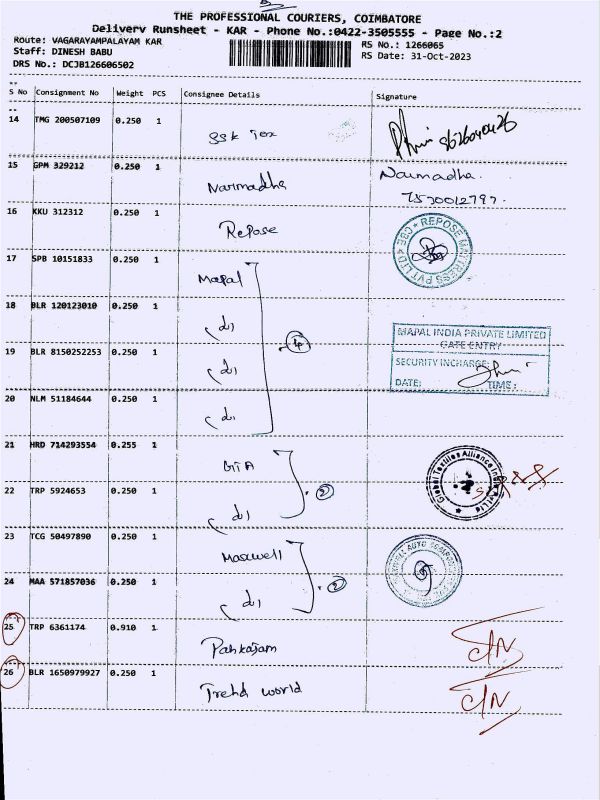 THE PROFESSIONAL COURIERS, COIMBATORE
Delivery Runsheet - KAR - Phone No.:0422-3505555 - Page No.:2
Route: VAGARAYAMPALAYAM KAR
RS No.: 1266065
Staff: DINESH BABU
RS Date: 31-Oct-2023
DRS No.: DCJB126606502
S No Consignment No Weight PCS Consignee Details Signature
14 TMG 200507109 0.250 1
15 GPM 329212 0.250 1 Narmadha Narmadha.
7530012797.
16 KKU 312312 0.250 1 Repose
REPOSE MATTRESS PVT LTD * CBE *
17 SPB 10151833 0.250 1 Mapal
18 BLR 120123010 0.250 1 (di) 4
MAPAL INDIA PRIVATE LIMITED
GATE ENTRY
19 BLR 8150252253 0.250 1 (di)
SECURITY INCHARGE:
DATE: TIME:
20 NLM 51184644 0.250 1 (di)
21 HRD 714293554 0.255 1 GTA
Global Textiles Alliance India Pvt Ltd
22 TRP 5924653 0.250 1 (di) 2
23 TCG 50497890 0.250 1 Maxwell
24 MAA 571857036 0.250 1 (di) 2
25 TRP 6361174 0.910 1 Pankajam C/N
26 BLR 1650979927 0.250 1 Trend world C/N